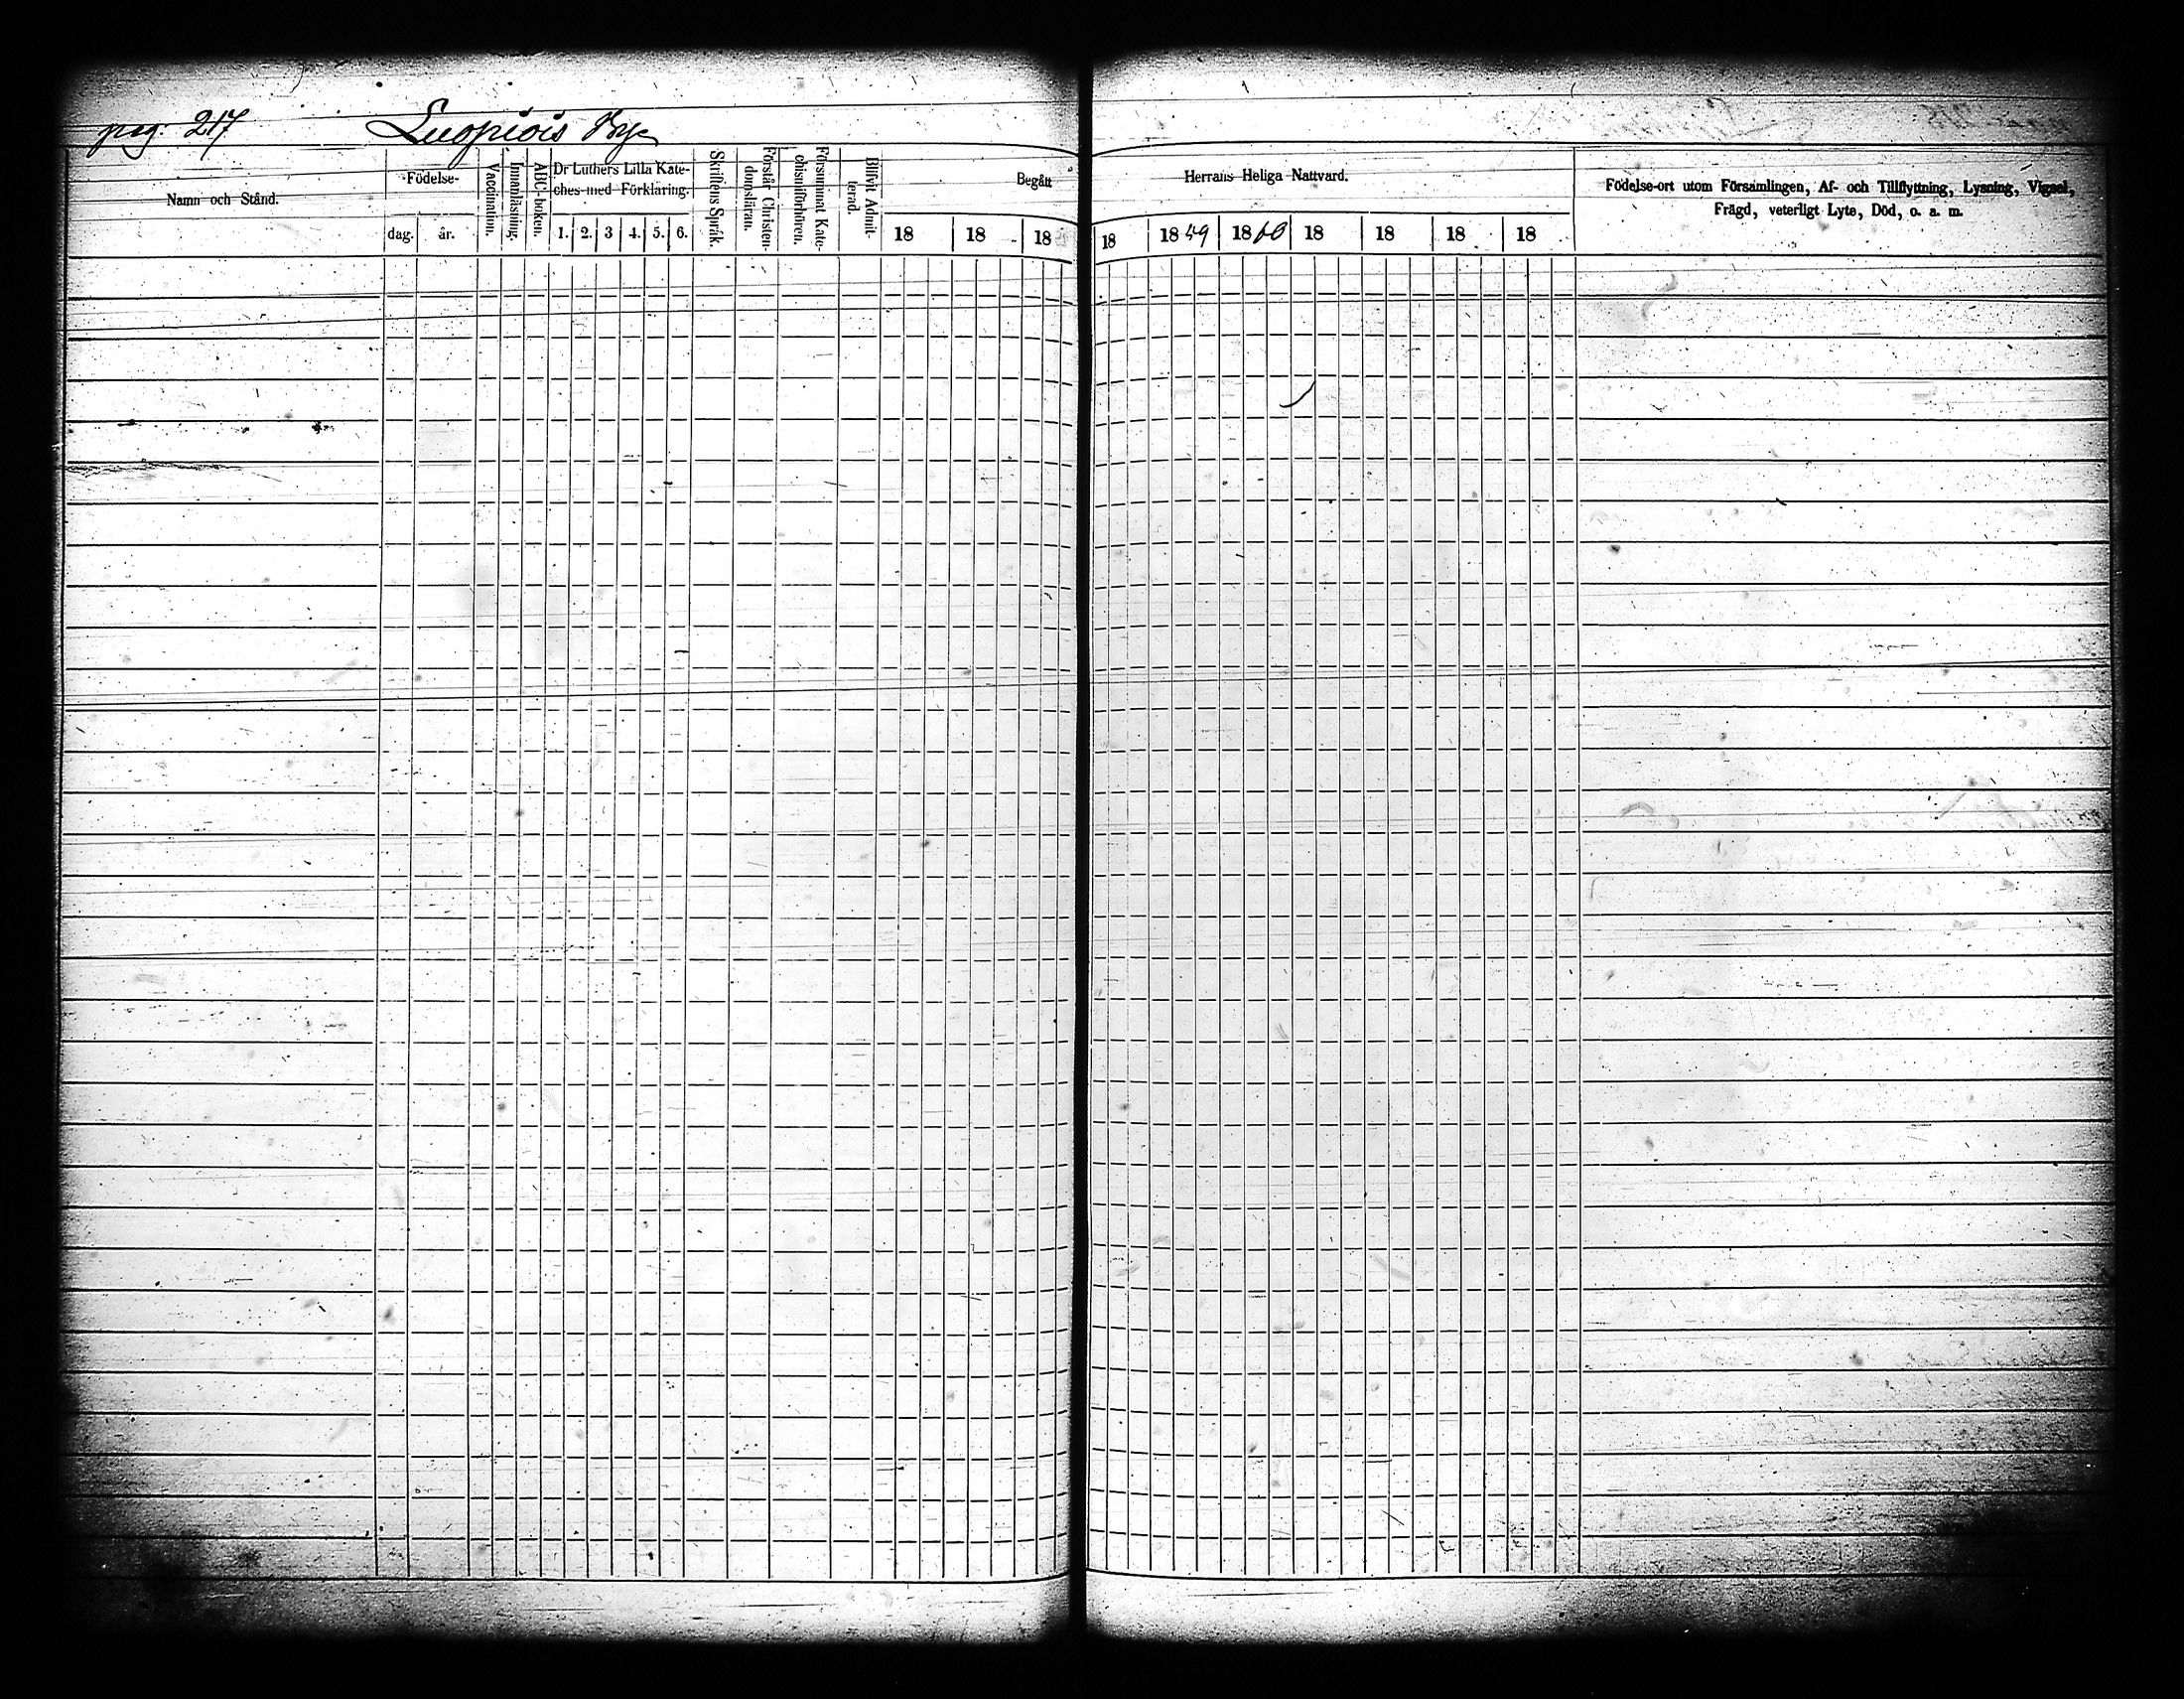 pag. 217 Luopiois By
Namn och Stånd.
Födelse-
dag. år.
Vaccination.
Innanläsning.
ABC-boken.
Dr Luthers Lilla Kate-
ches med Förklaring.
1. 2. 3 4. 5. 6.
Skriftens Språk.
Förstår Christen-
domsläran.
Försummat Kate-
chismiförhören.
Blifvit Admit-
terad.
Begått Herrans Heliga Nattvard.
18 18 18 18 1859 1860 18 18 18 18
Födelse-ort utom Församlingen, Af- och Tillflyttning, Lysning, Vigsel,
Frägd, veterligt Lyte, Död, o. a. m.